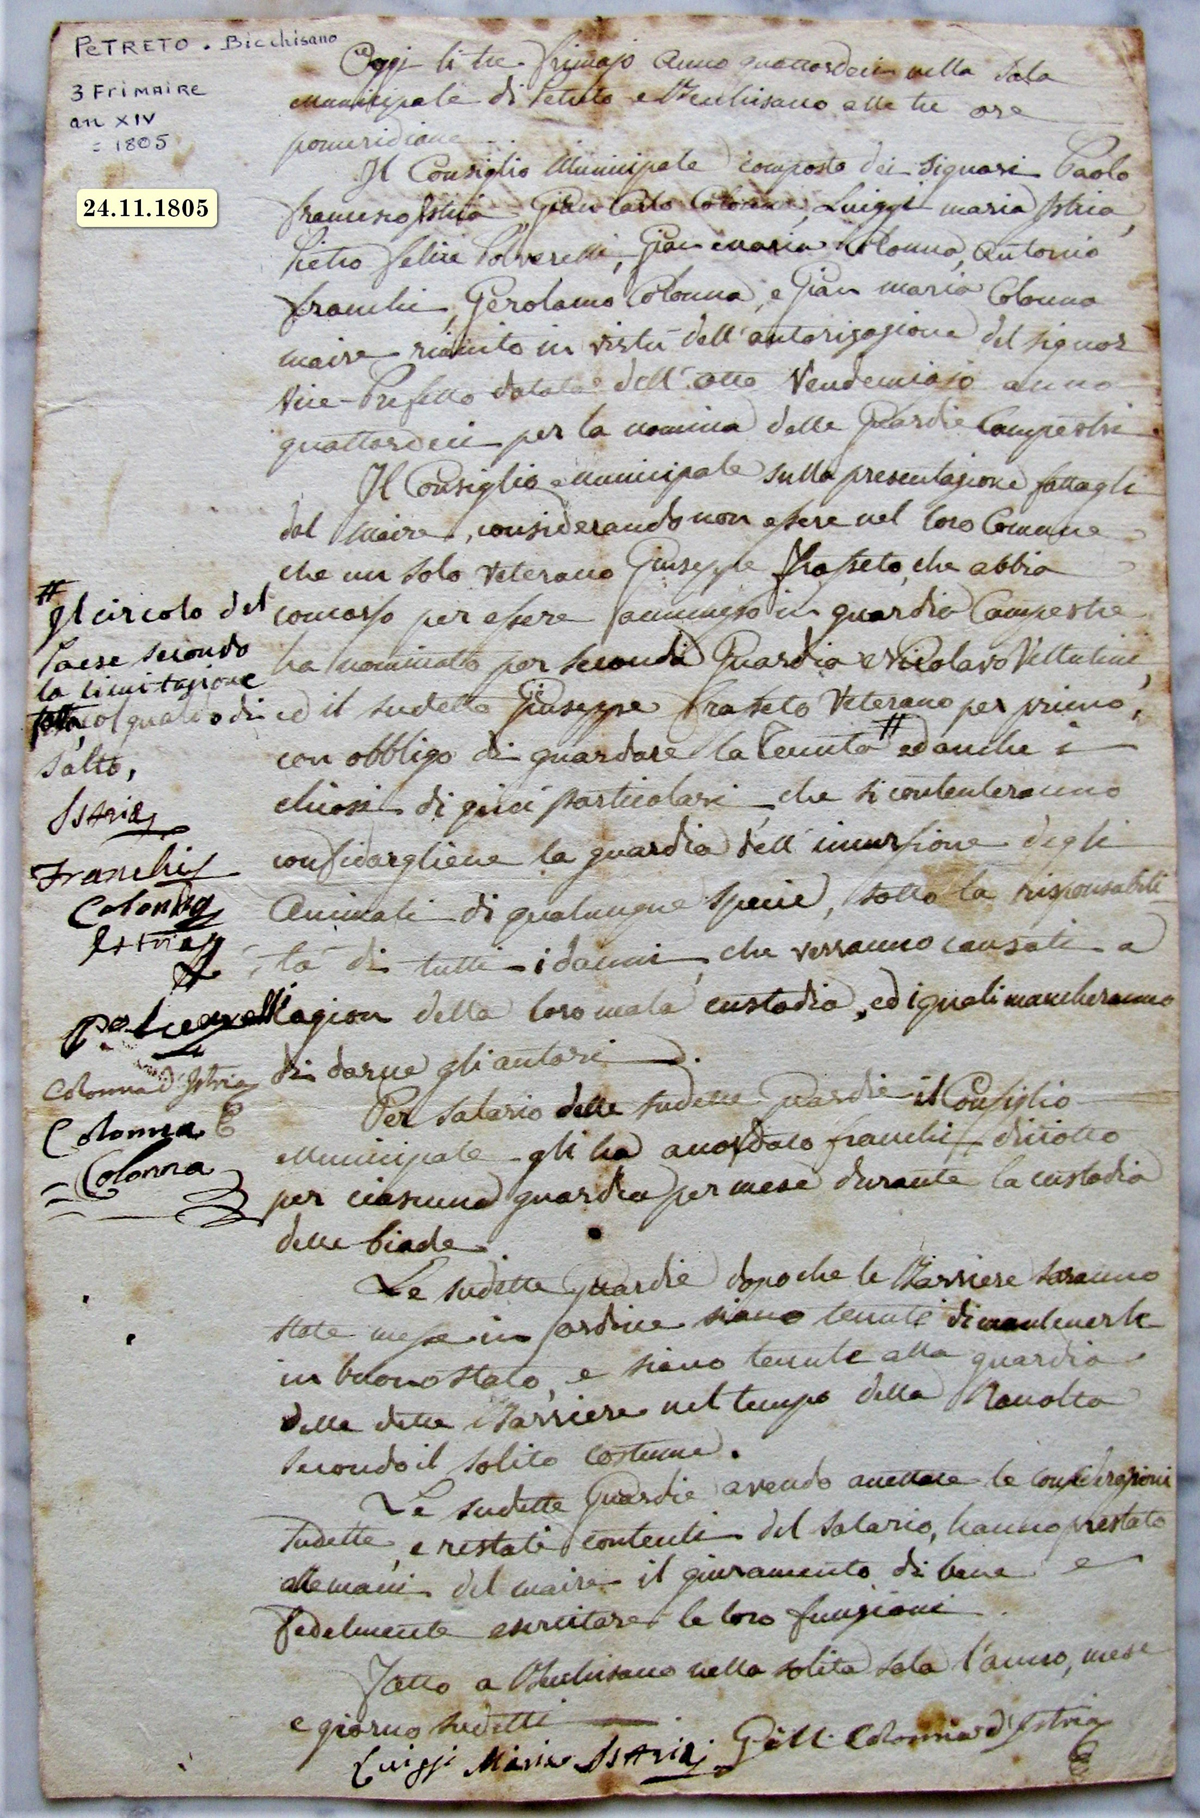 PETRETO - Bicchisano
3 FRIMAIRE
an XIV
= 1805
24.11.1805
Oggi li tre frimajo anno quattordeci nella sala
municipale di Petreto e Bicchisano alle tre ore
pomeridiane
Il Consiglio Municipale composto dei Signori Paolo
francesco Istria, Gian Carlo Colonna, Luiggi maria Istria,
Pietro felice Polverelli, Gian maria Colonna, Antonio
franchi, Gerolamo Colonna, e Gian maria Colonna
maire riunito in virtù dell'autorisazione del signor
Vice-Prefetto datata dell'otto Vendemiajo anno
quattordeci per la nomina delle Guardie Campestri
Il Consiglio municipale sulla presentazione fattagli
dal maire, considerando non essere nel loro Comune
che un solo Veterano Giuseppe frasseto, che abbia
concorso per essere ammesso in guardia Campestre
ha nominato per seconda Guardia Nicolavo Vellutini,
ed il sudetto Giuseppe frasseto Veterano per primo,
con obbligo di guardare la Tenuta # ed anche i
chiosi di particolari, che si contenteranno
confidargliene la guardia dell'incursione degli
Animali di qualunque specie, sotto la risponsabili-
tà di tutti i danni, che verranno causati a
cagion della loro mala custodia, ed i quali mancheranno
di darne gli autori.
Per salario delle sudette Guardie il Consiglio
Municipale gli ha accordato franchi diciotto
per ciascuna guardia per mese durante la custodia
delle biade.
Le sudette Guardie dopo che le Barriere saranno
state messe in ordine siano tenute di mantenerle
in buono stato, e siano tenute alla guardia
delle dette Barriere nel tempo della Raccolta
secondo il solito costume.
Le sudette Guardie avendo accettate le considerazioni
sudette, e restati contenti del salario, hanno prestato
alle mani del maire il giuramento di bene e
fedelmente esercitare le loro funzioni
Fatto a Bicchisano nella solita sala l'anno, mese
e giorno sudetti
Luiggi Maria Istria, Colonna d'Istria
#
Il circolo del
Paese secondo
la limitazione
col qualo di
Salto,
Istria
Franchi
Colonna
Istria
Polverelli
Colonna d'Istria
Colonna
Colonna